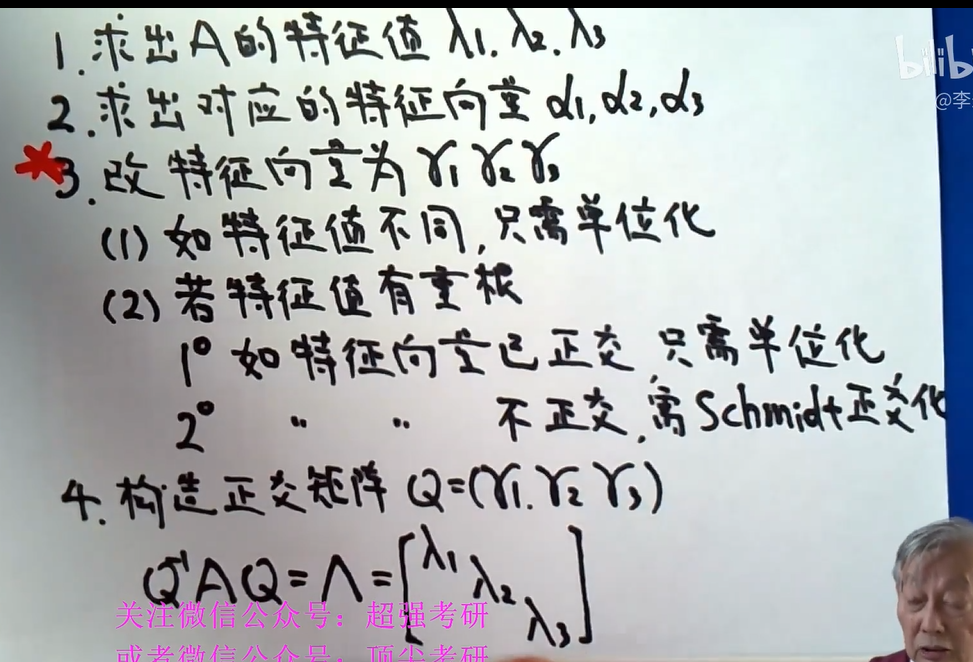 1.求出A的特征值 λ1.λ2.λ3
bilib
2.求出对应的特征向量 α1,α2,α3
@李
*3.改特征向量为 γ1 γ2 γ3
(1) 如特征值不同,只需单位化
(2) 若特征值有重根
1° 如特征向量已正交,只需单位化
2° 〃 〃 不正交,需Schmidt正交化
4.构造正交矩阵 Q=(γ1.γ2 γ3)
Q⁻¹AQ=Λ=[λ1 λ2 λ3]
关注微信公众号:超强考研
或者微信公众号:顶尖考研